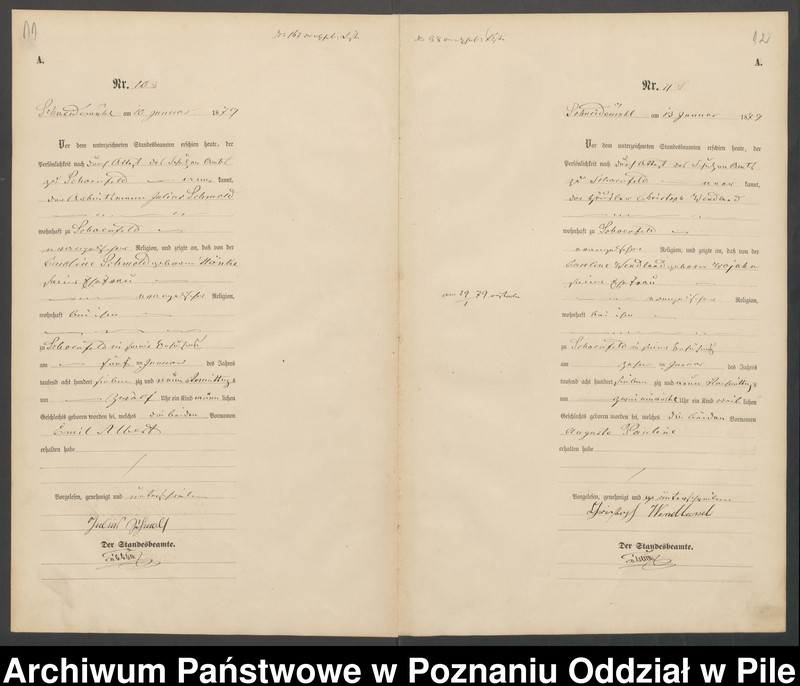 11
A.
Nr. 10
Schneidemühl am 10 Januar 1879
Vor dem unterzeichneten Standesbeamten erschien heute, der
Persönlichkeit nach durch Attest des Schulzen Amts
zu Schoenfeld kannt,
der Arbeitsmann Julius Schmold
wohnhaft zu Schoenfeld
evangelischer Religion, und zeigte an, daß von der
Caroline Schmold geborene
seine Ehefrau
evangelischer Religion,
wohnhaft bei ihm
zu Schoenfeld in seiner Behausung
am fünf ten Januar des Jahres
tausend acht hundert sieben zig und neun Vormittags
um zwölf Uhr ein Kind männlichen
Geschlechts geboren worden sei, welches die beiden Vornamen
Emil Albert
erhalten habe
Vorgelesen, genehmigt und unterschrieben
Julius
Der Standesbeamte.
12
A.
Nr. 11
Schneidemühl am 13 Januar 1879
Vor dem unterzeichneten Standesbeamten erschien heute, der
Persönlichkeit nach durch Attest des Schulzen Amts
zu Schoenfeld kannt,
der Häusler Christoph Wendland
wohnhaft zu Schoenfeld
evangelischer Religion, und zeigte an, daß von der
Caroline Wendland geborene
seine Ehefrau
evangelischer Religion,
wohnhaft bei ihm
zu Schoenfeld in seiner Behausung
am zehn ten Januar des Jahres
tausend acht hundert sieben zig und neun Nachmittags
um Uhr ein Kind weiblichen
Geschlechts geboren worden sei, welches die beiden Vornamen
Auguste Pauline
erhalten habe
Vorgelesen, genehmigt und unterschrieben
Christoph Wendland
Der Standesbeamte.
Archiwum Państwowe w Poznaniu Oddział w Pile